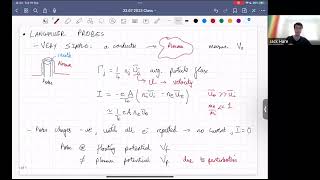 22.07.2023 Class
• LANGMUIR PROBES
- VERY SIMPLE: a conductor Plasma measure V₀
Γₛ = ¼ nₛ ūₛ avg. particle flux
velocity
Probe
I = -eA/4 (nᵢ ūᵢ - nₑ ūₑ) ūₑ >> ūᵢ
mₑ/mᵢ << 1
≃ ¼ e A nₑ ūₑ
- Probe charges -ve, until all e⁻ repelled → no current, I = 0
Probe @ floating potential V_f
≠ plasma potential V_p due to perturbation
Jack Hare